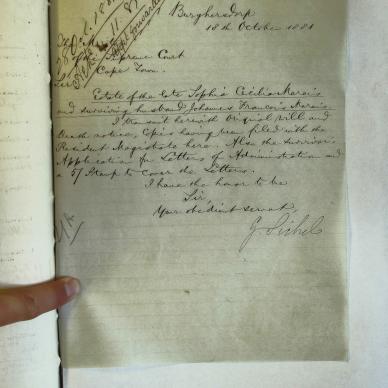 Burghersdorp
18th October 1881
The Master
of the Supreme Court
Cape Town.
Sir
Estate of the late Sophia Cecilia Marais
and surviving husband Johannes Francois Marais.
I transmit herewith Original Will and
Death notice, Copies having been filed with the
Resident Magistrate here. Also the survivors
Application for Letters of Administration and
a 5/ Stamp to cover the Letters.
I have the honor to be
Sir
Your obedient servant
G. Sichel